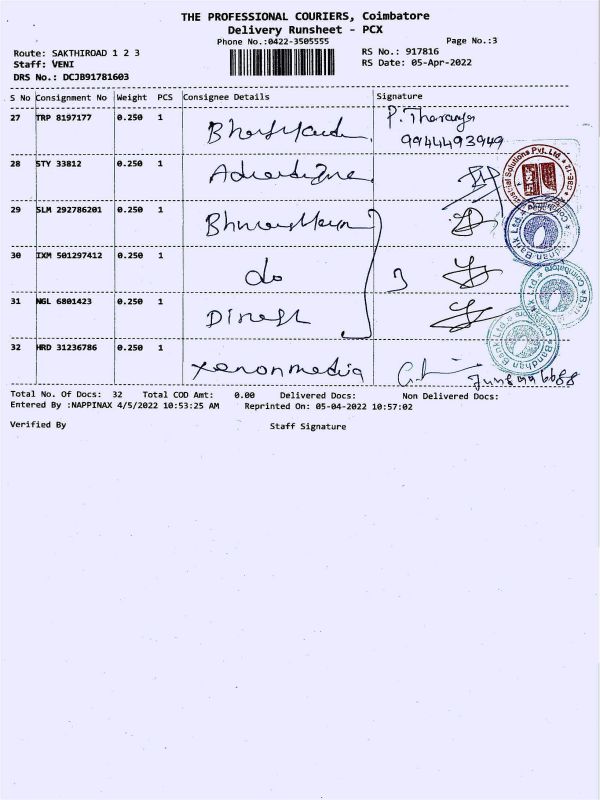 THE PROFESSIONAL COURIERS, Coimbatore
Delivery Runsheet - PCX
Phone No.:0422-3505555
Page No.:3
Route: SAKTHIROAD 1 2 3
RS No.: 917816
Staff: VENI
RS Date: 05-Apr-2022
DRS No.: DCJB91781603
S No Consignment No Weight PCS Consignee Details Signature
27 TRP 8197177 0.250 1
9944493949
28 STY 33812 0.250 1
29 SLM 292786201 0.250 1
30 IXM 501297412 0.250 1 do 3
31 NGL 6801423 0.250 1 Dinesh
32 HRD 31236786 0.250 1 xenonmedia
Total No. Of Docs: 32 Total COD Amt: 0.00 Delivered Docs: Non Delivered Docs:
Entered By :NAPPINAX 4/5/2022 10:53:25 AM Reprinted On: 05-04-2022 10:57:02
Verified By Staff Signature